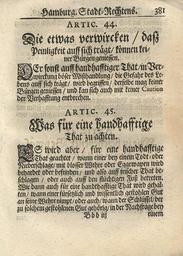 Hamburg. Stadt-Rechtens. 381
ARTIC. 44.
Die etwas verwircken / daß
Peinligkeit auff sich trägt / können kei-
ner Bürgen geniessen.
Der sonst auff handhafftiger That, in Ver-
wirckung böser Mißhandlung / die Gefahr des Le-
bens auff sich trägt / wird begriffen / derselbe mag keiner
Bürgen geniessen / und kan sich auch mit keiner Caution
der Verhafftung entbrechen.
ARTIC. 45.
Was für eine handhafftige
That zu achten.
Es wird aber / für eine handhafftige
That geachtet / wann einer bey einem Todt- oder
Niederschlage / mit blosser Wehr oder Gegenwehr
behandet oder befunden / und also auff frischer That be-
schlagen / oder auch auff den flüchtigen Fuß betreten.
Wie dann auch für eine handhafftige That wird gehal-
ten / wann einer fürsetzlich und wissentlich gestohlen Gut
an seine Wehr nimpt / oder auch / wann der Schlüssel / der
zu solchem gestohlenen Gut gehörig in der Nachfrage bey
Bbb iij einem